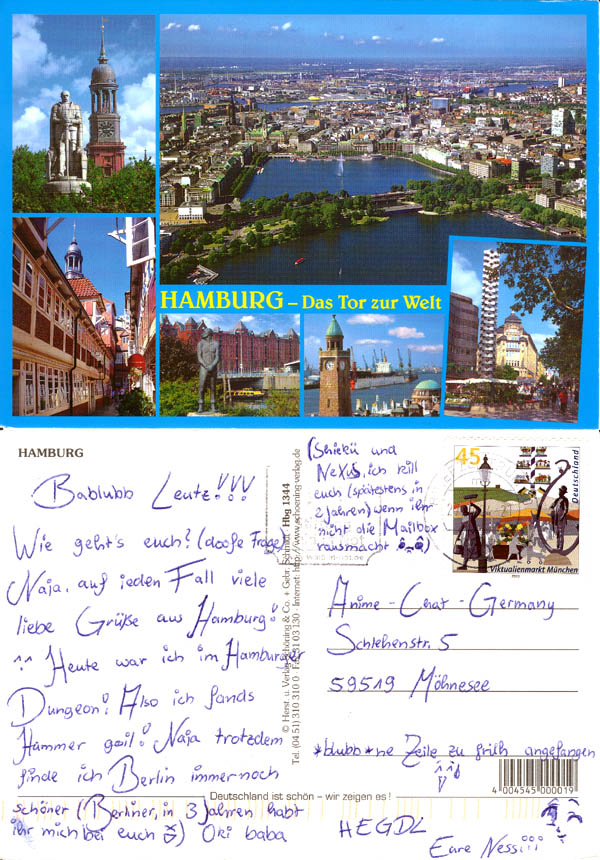 HAMBURG – Das Tor zur Welt
HAMBURG
Bablubb Leutz!!!
Wie geht's euch? (doofe Frage)
Naja, auf jeden Fall viele
liebe Grüße aus Hamburg!
^^ Heute war ich im Hamburger
Dungeon! Also ich fands
Hammer geil! Naja trotzdem
finde ich Berlin immernoch
schöner (Berliner, in 3 Jahren habt
ihr mich bei euch) Oki baba
(Shiekü und
NeXuS, ich kill
euch (spätestens in
2 Jahren) wenn ihr
nicht die Mailbox
rausmacht ô_ô)
© Herst. u. Verlag Schöning & Co. + Gebr. Schmidt Hbg 1344
Tel. (04 51) 310 310 0 · Internet: http://www.schoening-verlag.de
45
Deutschland
Viktualienmarkt München
Anime-Chat-Germany
Schlehenstr. 5
59519 Möhnesee
*blubb*ne Zeile zu früh angefangen
^^
4 004545 000019
Deutschland ist schön – wir zeigen es!
HEGDL
Eure Nessiii